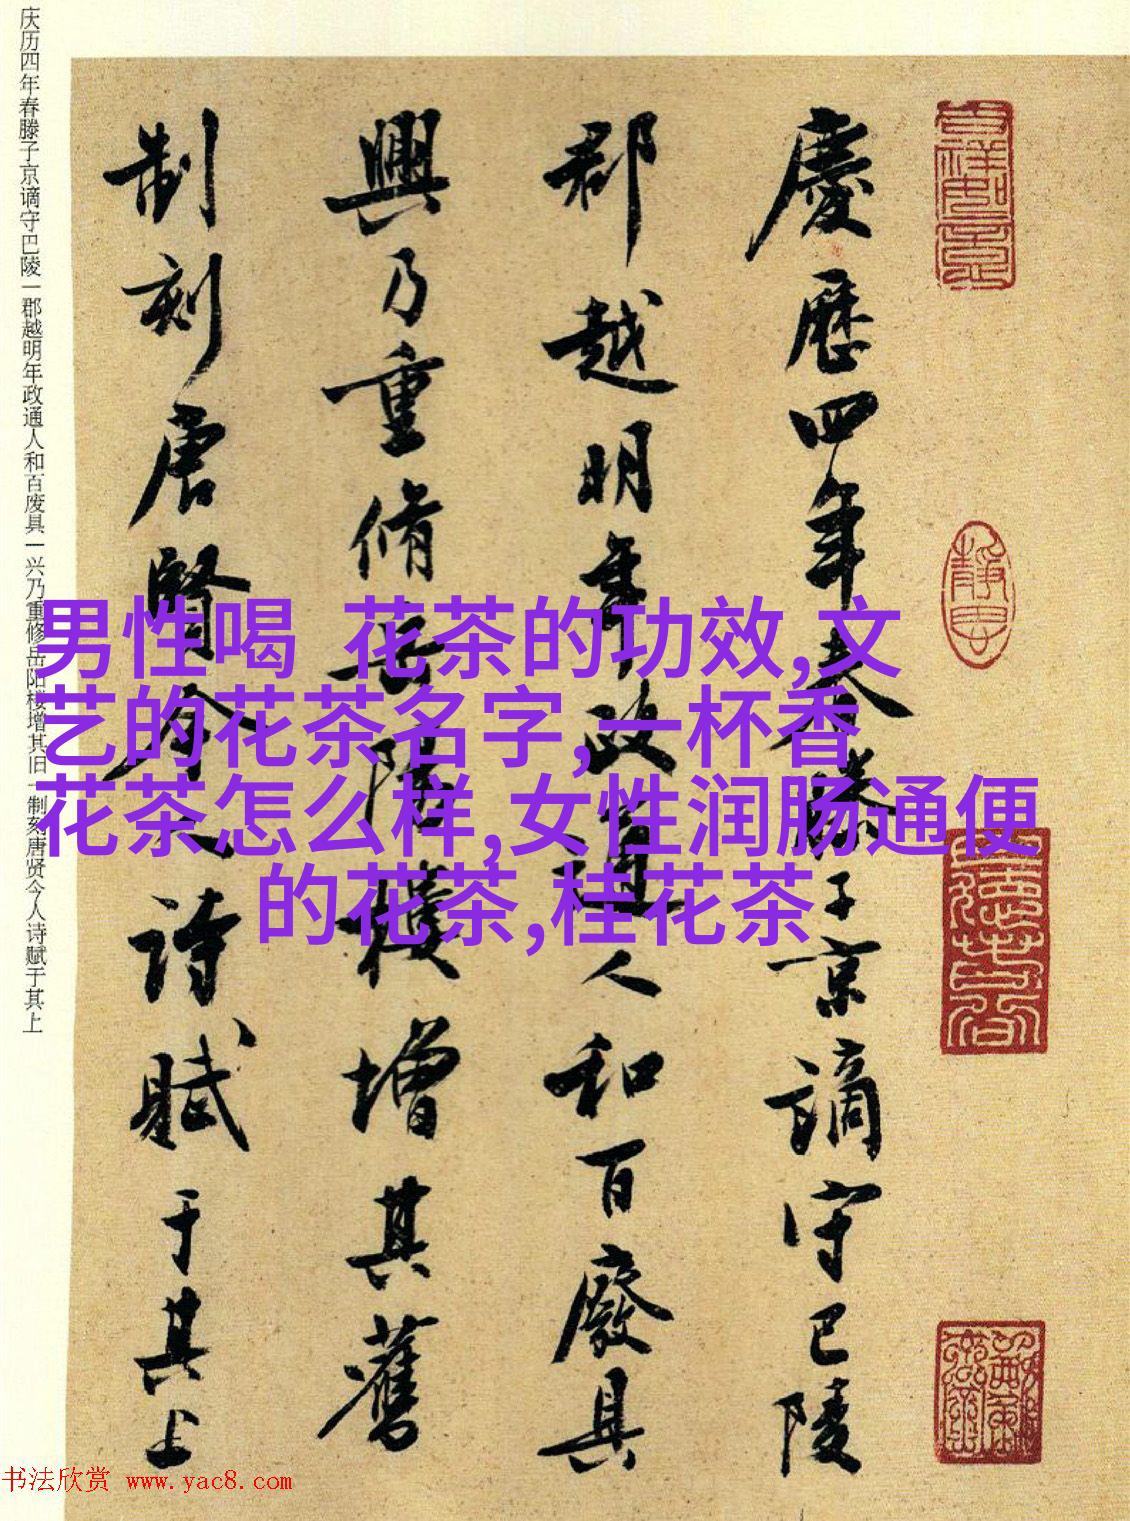 慶歷四年春滕子京謫守巴陵
郡越明年政通人和百廢具
興乃重脩岳陽樓增其舊
制刻唐賢今人詩賦于其上
庆历四年春滕子京谪守巴陵一郡越明年政通人和百废具一兴乃重修岳阳楼增其旧一制刻唐贤今人诗赋于其上
男性喝 花茶的功效,文
艺的花茶名字,一杯香
花茶怎么样,女性润肠通便
的花茶,桂花茶
书法欣赏 www.yac8.com